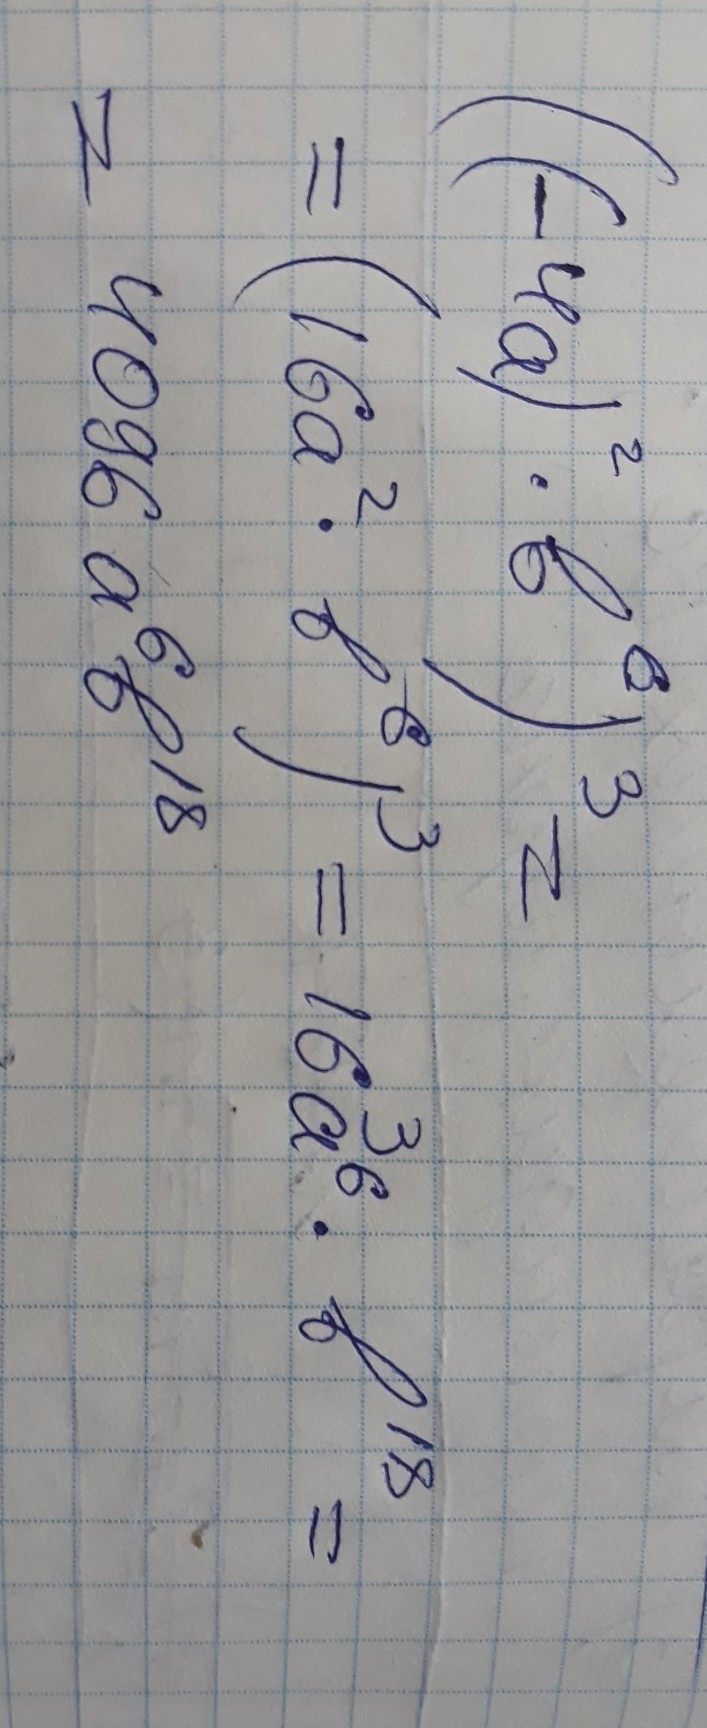 ((-4a)² · b⁶)³ =
= (16a² · b⁶)³ = 16³a⁶ · b¹⁸ =
= 4096 a⁶b¹⁸